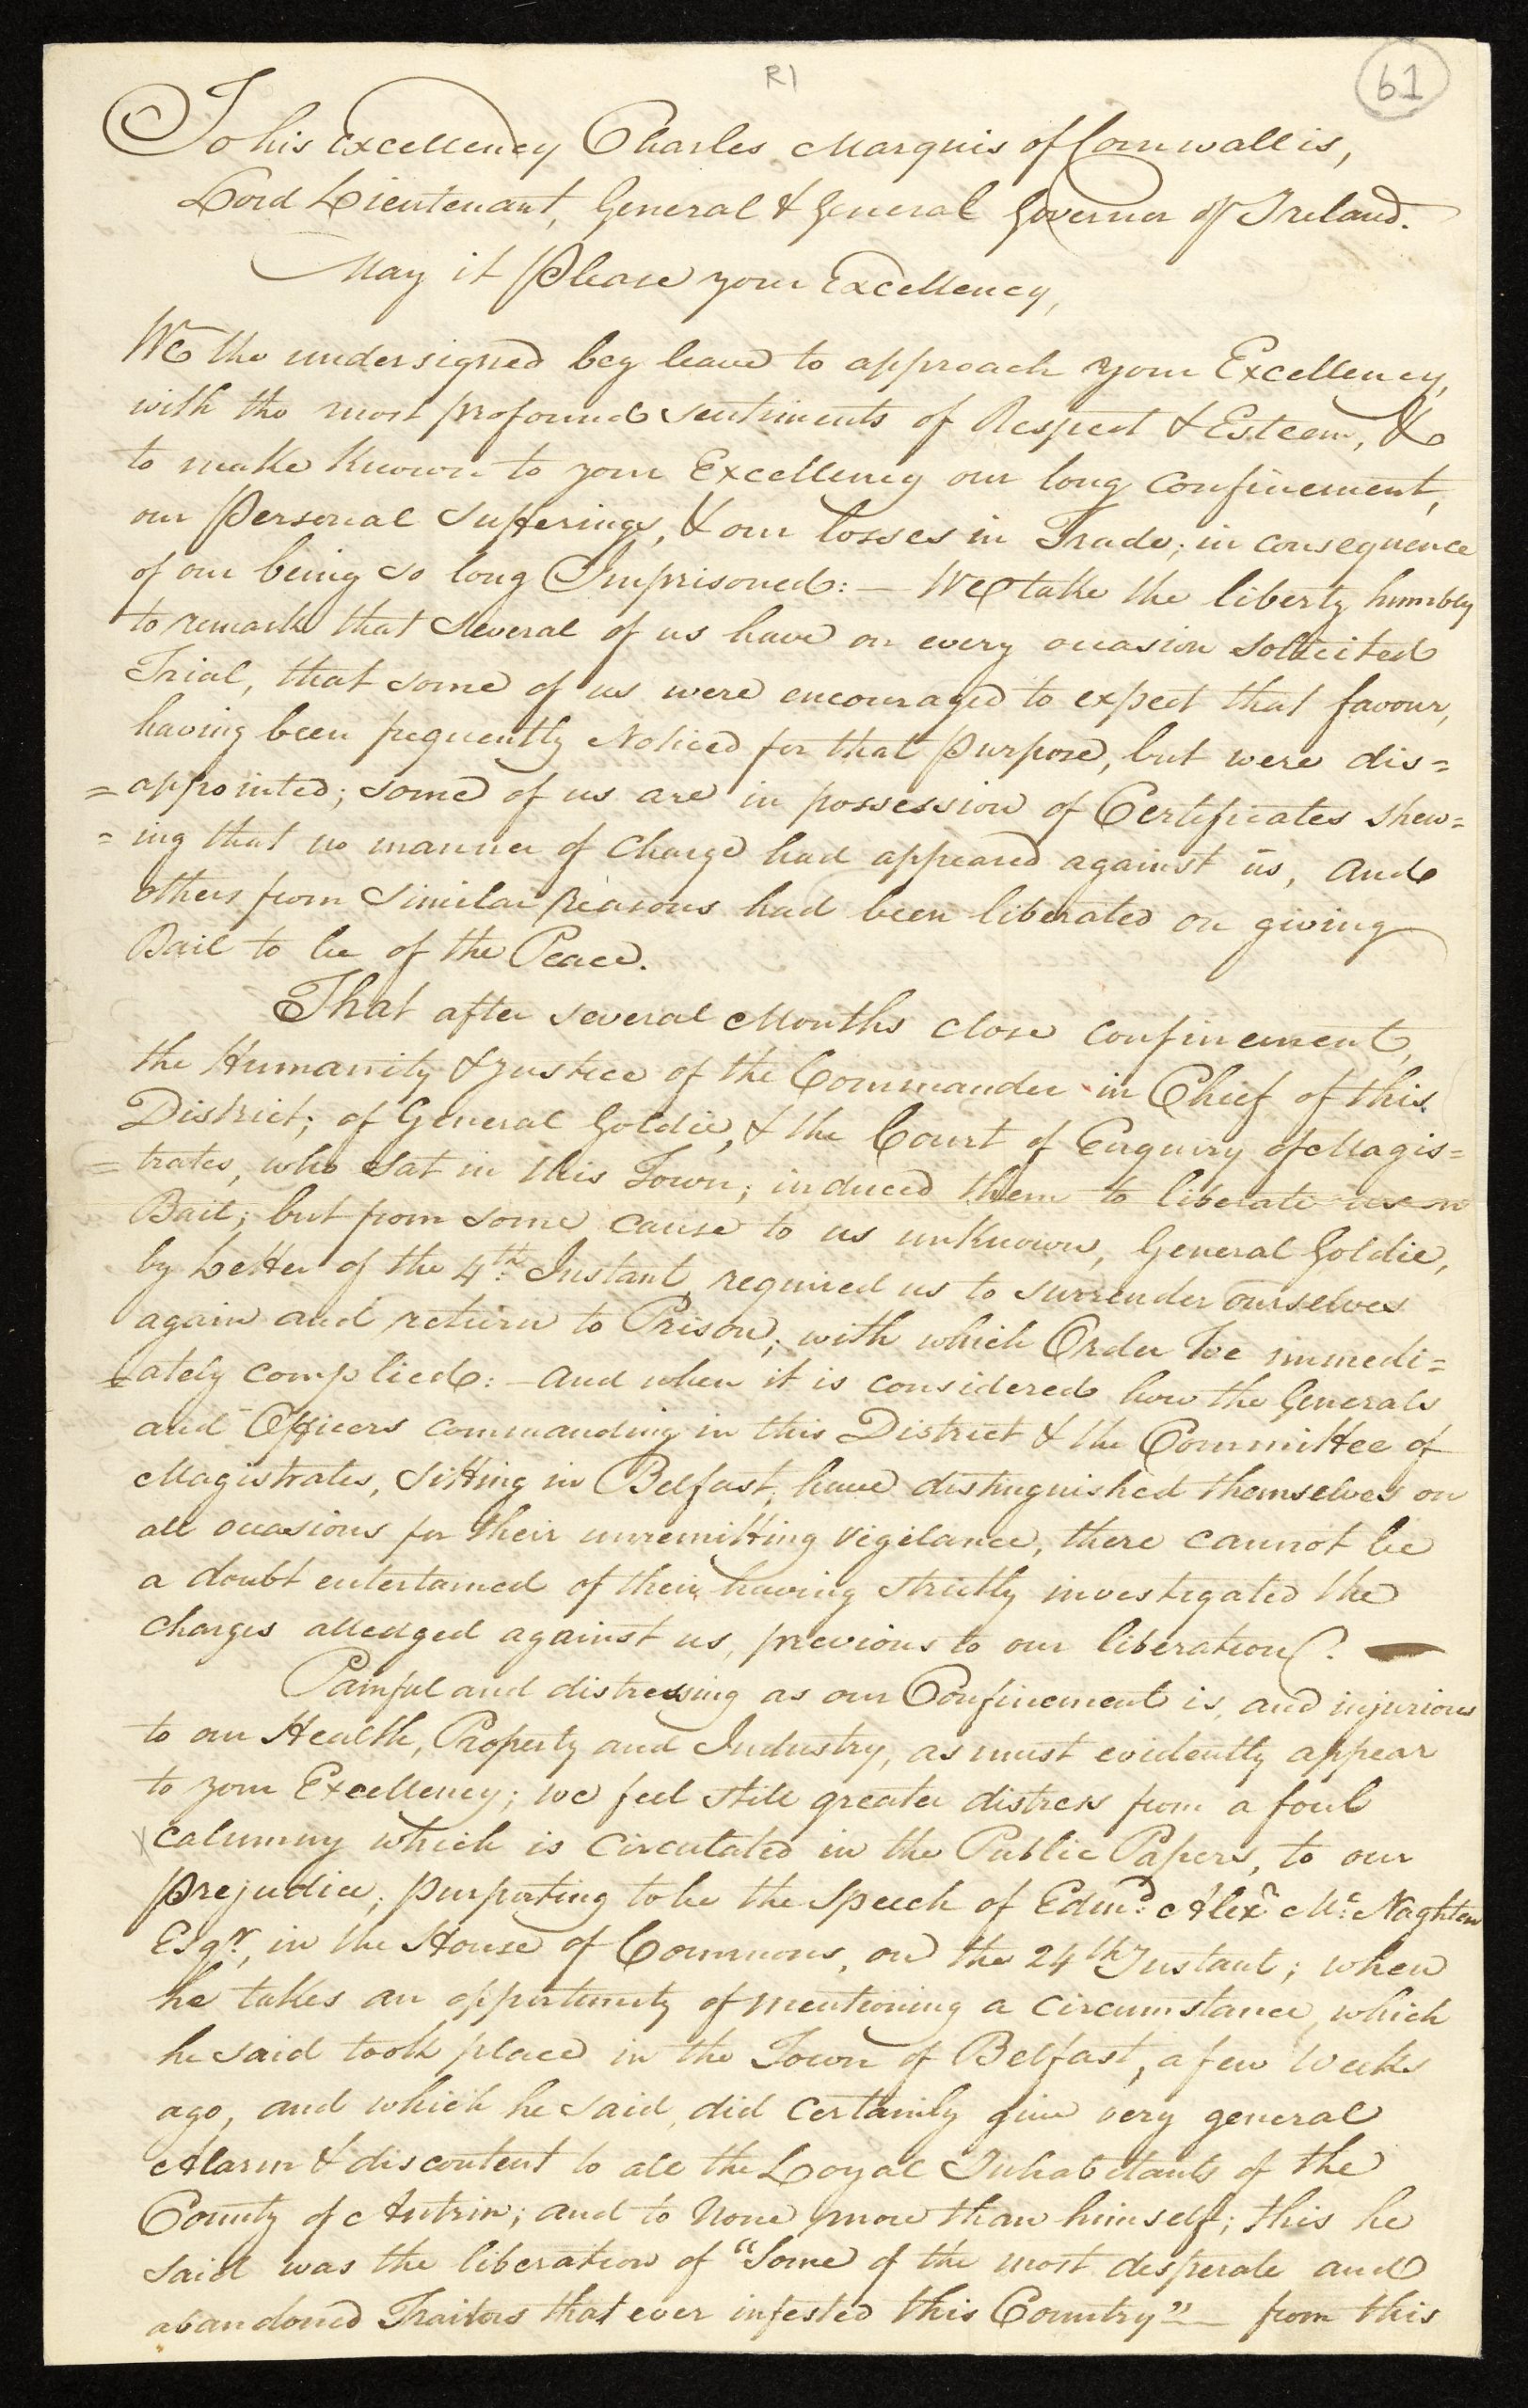 R1
61
To his Excellency Charles Marquis of Cornwallis,
Lord Lieutenant, General & General Governor of Ireland.
May it Please your Excellency,
We the undersigned beg leave to approach your Excellency,
with the most profound sentiments of Respect & Esteem, &
to make known to your Excellency our long confinement,
our Personal Sufferings, & our losses in Trade; in consequence
of our being so long Imprisoned: — We take the liberty humbly
to remark that several of us have on every occasion sollicited
Trial, that some of us were encouraged to expect that favour,
having been frequently Noticed for that Purpose, but were dis=
=appointed; some of us are in possession of Certificates shew=
=ing that no manner of charge had appeared against us, and
others from Similar Reasons had been liberated on giving
Bail to be of the Peace.
That after several Months close confinement,
the Humanity & Justice of the Commander in Chief of this
District; of General Goldie, & the Court of Enquiry of Magis=
=trates, who sat in this Town; induced them to liberate us on
Bail; but from some cause to us unknown, General Goldie,
by Letter of the 4th. Instant, required us to surrender ourselves
again and return to Prison; with which Order We immedi=
=ately complied: — and when it is considered how the Generals
and Officers commanding in this District & the Committee of
Magistrates, sitting in Belfast, have distinguished themselves on
all occasions for their unremitting vigilance, there cannot be
a doubt entertained of their having strictly investigated the
charges alledged against us, previous to our liberation. —
Painful and distressing as our Confinement is, and injurious
to our Health, Property and Industry, as must evidently appear
to your Excellency; we feel still greater distress from a foul
calumny which is circulated in the Public Papers, to our
Prejudice, purporting to be the Speech of Edmd. Alexr. Mc. Naghten
Esqr., in the House of Commons, on the 24th Instant; when
he takes an opportunity of mentioning a circumstance, which
he said took place in the Town of Belfast, a few Weeks
ago, and which he said did certainly give very general
Alarm & discontent to all the Loyal Inhabitants of the
County of Antrim; and to None more than himself; this he
said was the liberation of "Some of the most desperate and
abandoned Traitors that ever infested this Country" — from this